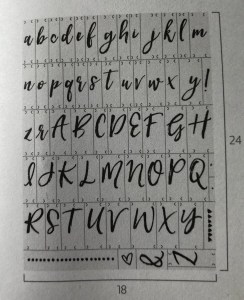 abcdefghijklm
nopqrstuvwxy!
zrABCDEFGH
IJKLMNOPQ
RSTUVWXY
& Z
24
18